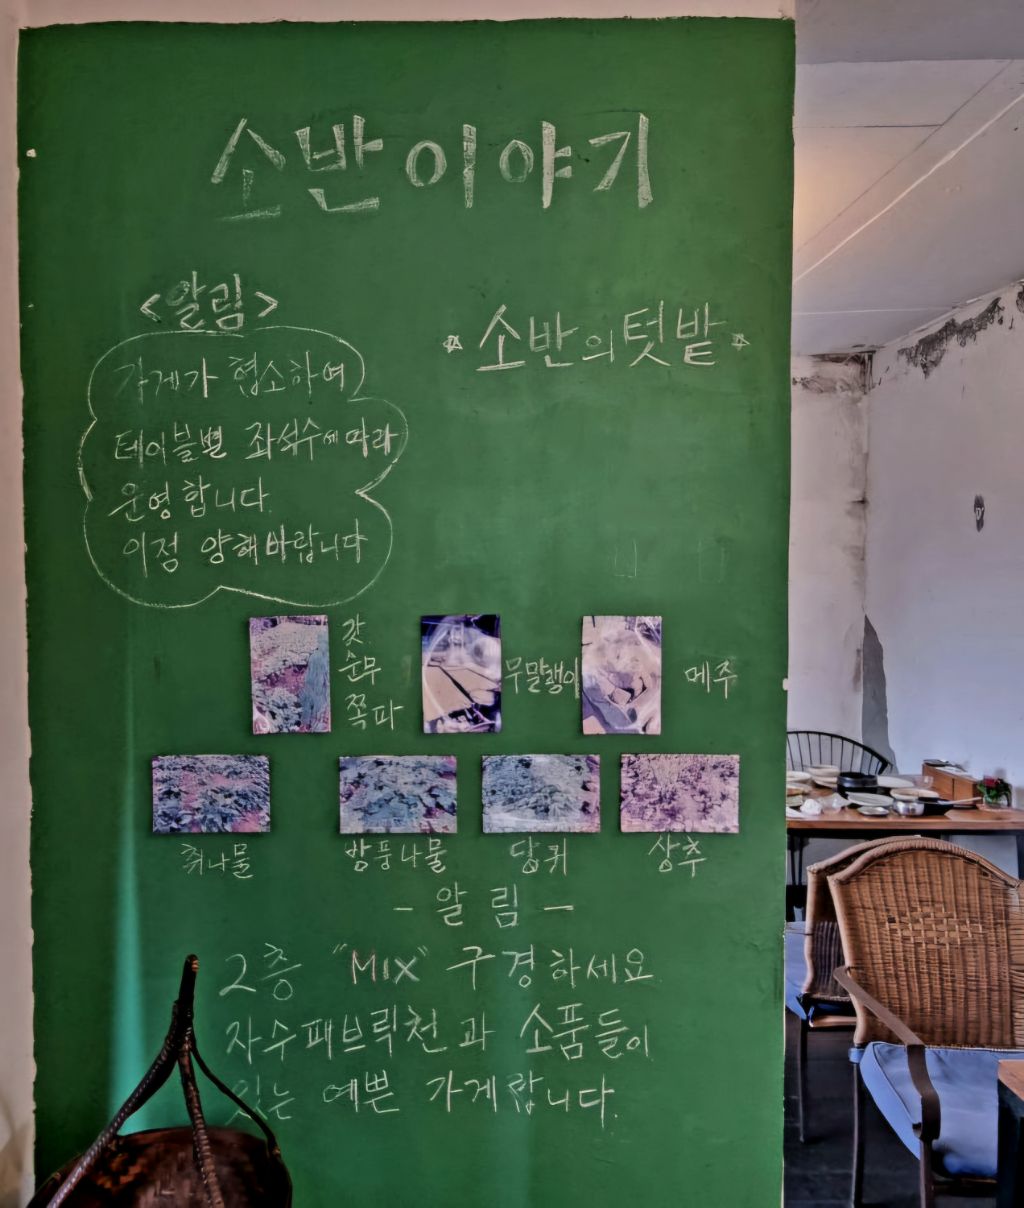 소반이야기
<알림>
가게가 협소하여
테이블별 좌석수에 따라
운영합니다.
이점 양해바랍니다
소반의텃밭
갓
순무
쪽파
무말랭이
메주
취나물
방풍나물
당귀
상추
- 알림 -
2층 "MIX" 구경하세요
자수패브릭천과 소품들이
있는 예쁜 가게랍니다.